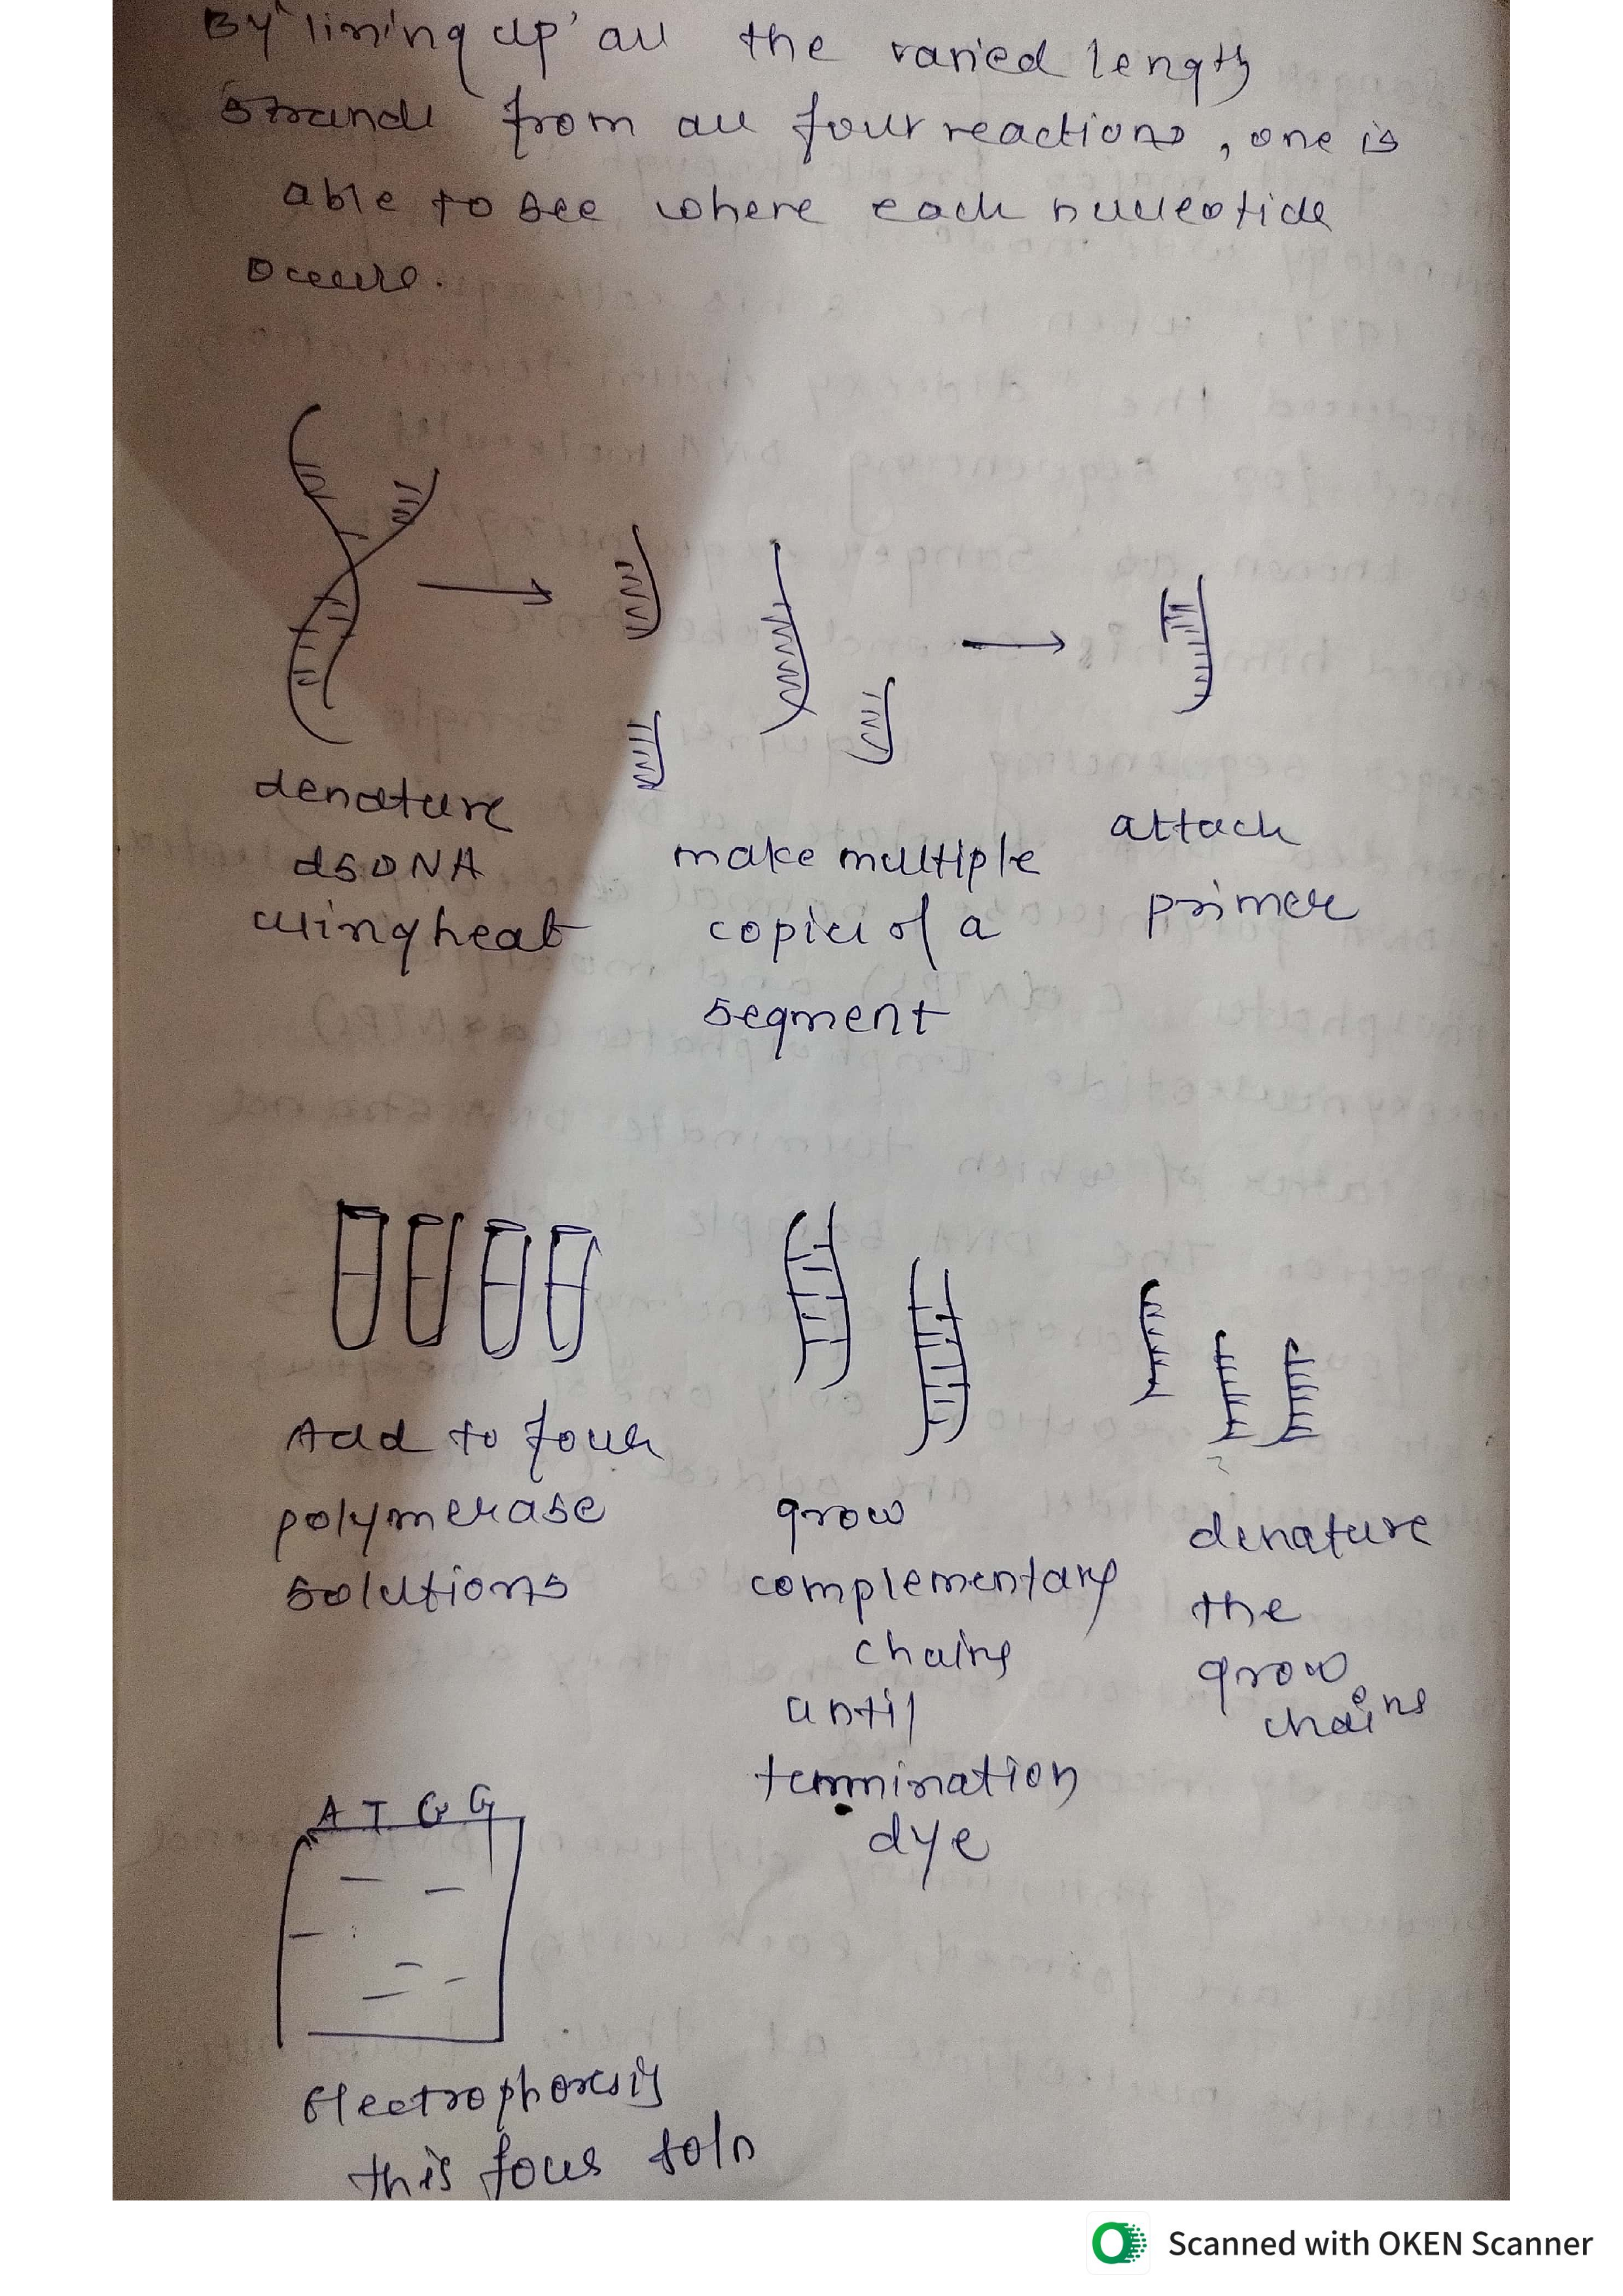 By 'lining up' all the varied length
strands from all four reactions, one is
able to see where each nucleotide
occurs.
denature
dsDNA
using heat
make multiple
copies of a
segment
attach
primer
Add to four
polymerase
solutions
grow
complementary
chains
until
termination
dye
denature
the
grow
chains
A T G G
Electrophoresis
this four soln
Scanned with OKEN Scanner